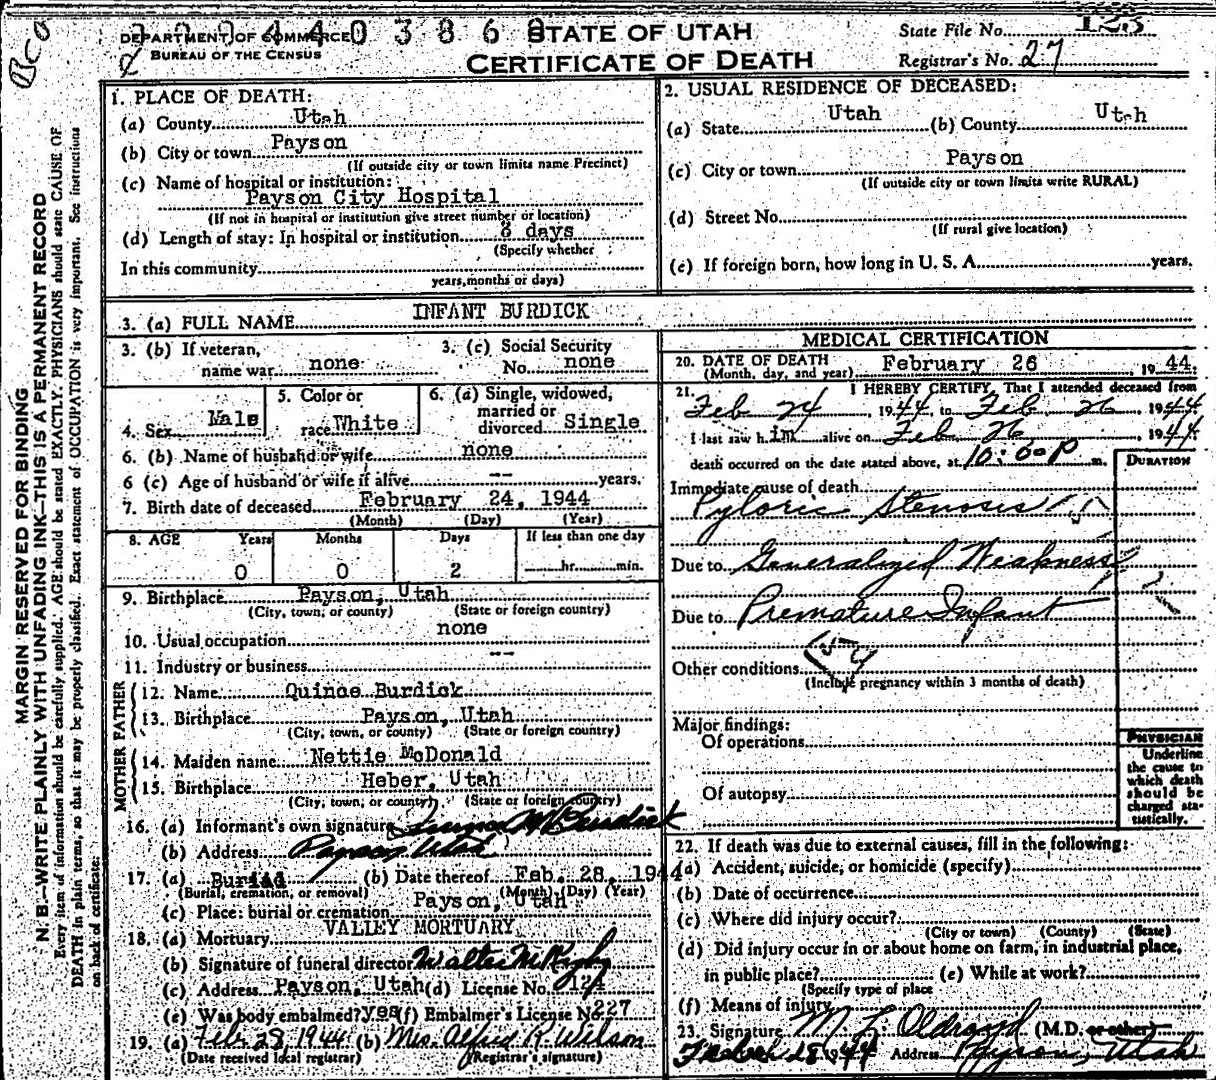 BCO
DEPARTMENT OF COMMERCE
BUREAU OF THE CENSUS
STATE OF UTAH
CERTIFICATE OF DEATH
State File No. 123
Registrar's No. 27
MARGIN RESERVED FOR BINDING
N. B.—WRITE PLAINLY WITH UNFADING INK—THIS IS A PERMANENT RECORD
Every item of information should be carefully supplied. AGE should be stated EXACTLY. PHYSICIANS should state CAUSE OF
DEATH in plain terms, so that it may be properly classified. Exact statement of OCCUPATION is very important. See instructions
on back of certificate.
1. PLACE OF DEATH:
(a) County Utah
(b) City or town Payson
(If outside city or town limits name Precinct)
(c) Name of hospital or institution:
Payson City Hospital
(If not in hospital or institution give street number or location)
(d) Length of stay: In hospital or institution 3 days
(Specify whether
In this community
years, months or days)
2. USUAL RESIDENCE OF DECEASED:
(a) State Utah (b) County Utah
(c) City or town Payson
(If outside city or town limits write RURAL)
(d) Street No.
(If rural give location)
(e) If foreign born, how long in U. S. A. years.
3. (a) FULL NAME INFANT BURDICK
3. (b) If veteran, name war none
3. (c) Social Security No. none
4. Sex Male
5. Color or race White
6. (a) Single, widowed, married or divorced Single
6. (b) Name of husband or wife none
6 (c) Age of husband or wife if alive -- years.
7. Birth date of deceased February 24, 1944
(Month) (Day) (Year)
8. AGE Years Months Days If less than one day
0 0 2 hr. min.
9. Birthplace Payson, Utah
(City, town, or county) (State or foreign country)
10. Usual occupation none
11. Industry or business --
FATHER
12. Name Quince Burdick
13. Birthplace Payson, Utah
(City, town, or county) (State or foreign country)
MOTHER
14. Maiden name Nettie McDonald
15. Birthplace Heber, Utah
(City, town, or county) (State or foreign country)
16. (a) Informant's own signature Burdick
(b) Address Payson Utah
17. (a) Burial (b) Date thereof Feb. 28, 1944
(Burial, cremation, or removal) (Month) (Day) (Year)
(c) Place: burial or cremation Payson, Utah
18. (a) Mortuary VALLEY MORTUARY
(b) Signature of funeral director Walter M
(c) Address Payson, Utah (d) License No. 124
(e) Was body embalmed? yes (f) Embalmer's License No. 227
19. (a) Feb. 28, 1944 (b) Mrs. Alfred R. Wilson
(Date received local registrar) (Registrar's signature)
MEDICAL CERTIFICATION
20. DATE OF DEATH February 26, 1944.
(Month, day, and year)
21. I HEREBY CERTIFY, That I attended deceased from
Feb 24, 1944, to Feb. 26, 1944
I last saw him alive on Feb 26, 1944
death occurred on the date stated above, at 10:00 P m.
DURATION
Immediate cause of death
Pyloric Stenosis
Due to Generalized Weakness
Due to Premature Infant
Other conditions
(Include pregnancy within 3 months of death)
Major findings:
Of operations
Of autopsy
PHYSICIAN
Underline
the cause to
which death
should be
charged sta-
tistically.
22. If death was due to external causes, fill in the following:
(a) Accident, suicide, or homicide (specify)
(b) Date of occurrence
(c) Where did injury occur?
(City or town) (County) (State)
(d) Did injury occur in or about home on farm, in industrial place,
in public place? (e) While at work?
(Specify type of place
(f) Means of injury
23. Signature M. L. Oldroyd (M.D. or other)
28 1944 Address Payson, Utah